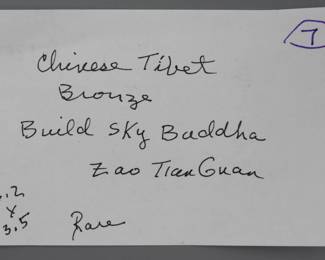 7
Chinese Tibet
Bronze
Build Sky Buddha
Zao Tian Guan
.2
x
3.5
Rare